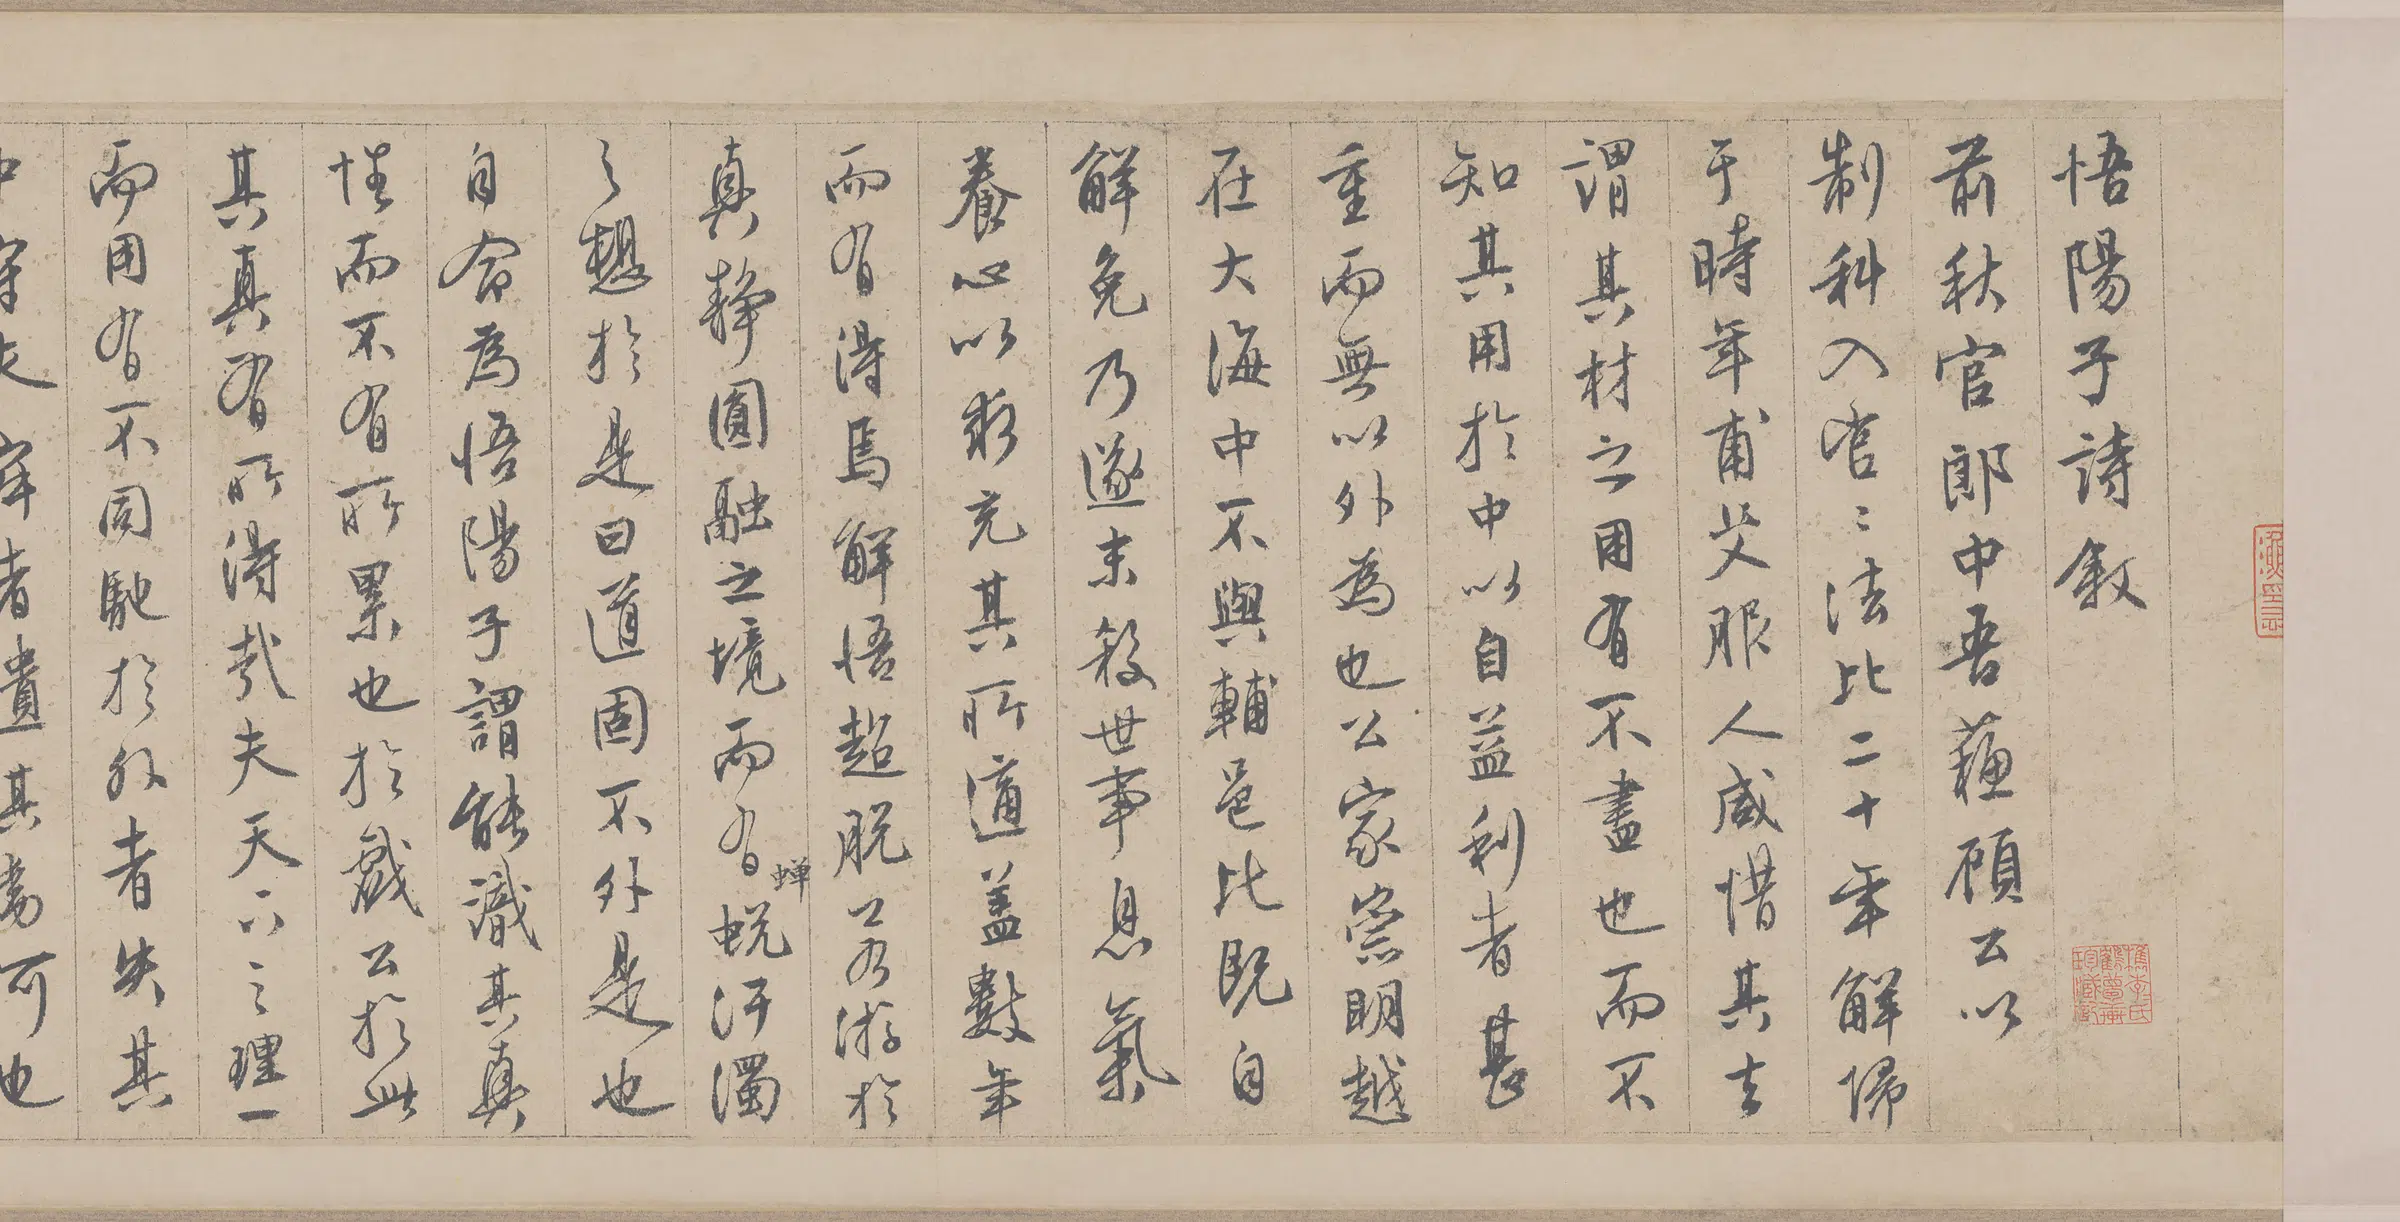 悟陽子詩敘
前秋官郎中吾蘓顧公以
制科入官〻法比二十年解歸
于時年甫艾服人咸惜其去
謂其材之用有不盡也而不
知其用於中以自益利者甚
重而無以外為也公家崇明越
在大海中不與輔邑比既自
解免乃遂末殺世事息氣
養心以求充其所適蓋數年
而有得焉解悟超脫公若游於
真靜圓融之境而有蟬蛻汙濁
之想於是曰道固不外是也
自命為悟陽子謂能識其真
性而不有所累也於戲公於此
其真有所得哉夫天下之理一
而用有不同馳於外者失其
中守夫 者遺其 可也